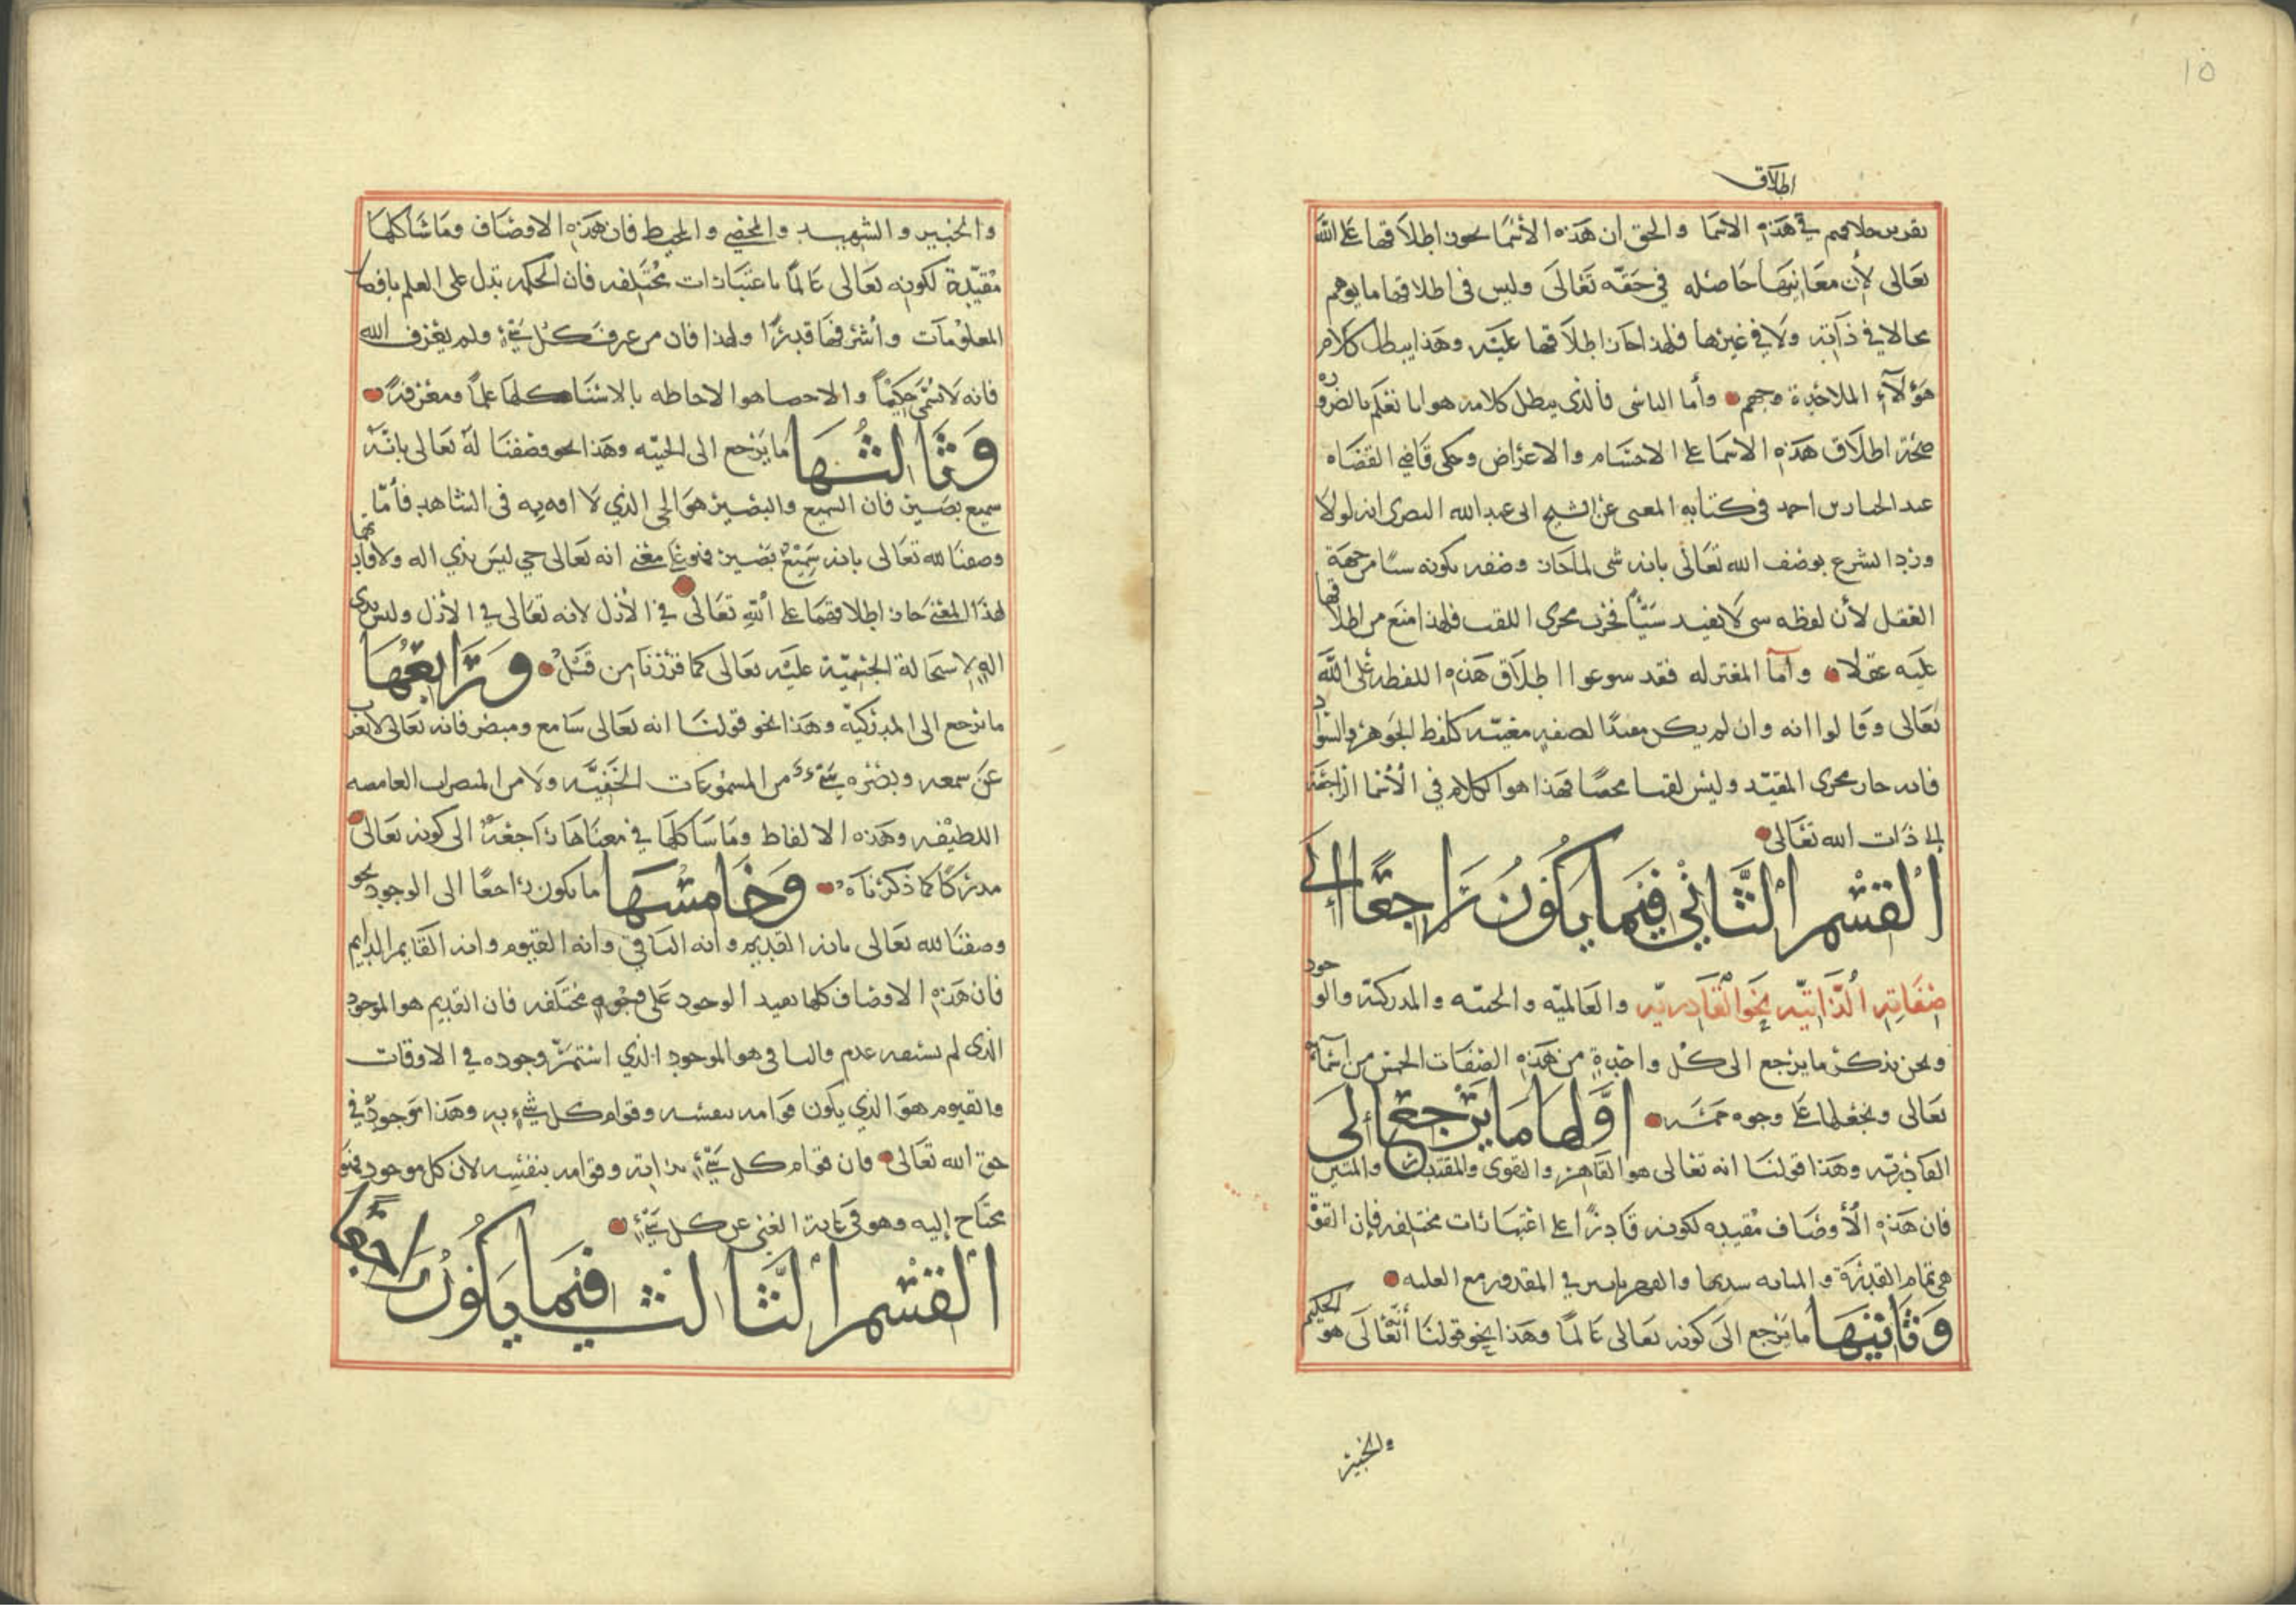 ١٥
اطلاق
تقرير خلافهم في هذه الاسما والحق ان هذه الأسما يجوز اطلاقها على الله
تعالى لأن معانيها حاصله في حقه تعالى وليس في اطلاقها ما يوهم
محالا في ذاته ولا في غيرها فلهذا جاز اطلاقها عليه وهذا يبطل كلام
هؤلاء الملاحدة وجهم وأما الناشي فالذي يبطل كلامه هو انا نعلم بالضروره
صحة اطلاق هذه الاسما على الاجسام والاعراض وحكى قاضي القضاه
عبد الجبار بن احمد في كتابه المغني عن الشيخ ابي عبد الله البصري انه لولا
ورد الشرع بوصف الله تعالى بانه شي لما جاز وصفه بكونه شيا من جهة
العقل لأن لفظه شي لا يفيد شيئا فجرت مجرى اللقب فلهذا امتنع من اطلاقها
عليه عقلا وأما المعتزله فقد سوغوا اطلاق هذه اللفظه على الله
تعالى وقالوا انه وان لم يكن مفيدا لصفه معينه كلفظ الجوهر والسواد
فانه جار مجرى المقيد وليس لقبا محضا فهذا هو الكلام في الأسما الراجعة
الى ذات الله تعالى
القسم الثاني فيما يكون راجعا إلى
صفاته الذاتيه نحو القادريه والعالميه والحييه والمدركية والوجود
ونحن نذكر ما يرجع الى كل واحدة من هذه الصفات الخمس من اسمائه
تعالى ونجعلها على وجوه خمسه اولها ما يرجع إلى
القادريه وهذا قولنا انه تعالى هو القاهر والقوى والمقتدر والمتين
فان هذه الأوصاف مفيده لكونه قادرا على اعتبارات مختلفه فإن القوة
هي تمام القدرة والمتانه شدتها والقهر تاثير في المقدور مع الغلبه
وثانيها ما يرجع الى كونه تعالى عالما وهذا نحو قولنا انه تعالى هو الحكيم
والخبير
والخبير والشهيد والمحصي والمحيط فان هذه الاوصاف وما شاكلها
مفيدة لكونه تعالى عالما باعتبارات مختلفه فان الحكمه تدل على العلم بافضل
المعلومات وأشرفها قدرا ولهذا فان من عرف كل شيء ولم يعرف الله
فانه لا يسمى حكيما والاحصا هو الاحاطه بالاشيا كلها علما ومعرفة
وثالثها ما يرجع الى الحييه وهذا نحو وصفنا له تعالى بانه
سميع بصير فان السميع والبصير هو الحي الذي لا افه به في الشاهد فأما
وصفنا لله تعالى بانه سميع بصير فهو على معنى انه تعالى حي ليس بذي اله ولافايه بها
لهذا المعنى جاز اطلاقهما على الله تعالى في الأزل لانه تعالى في الأزل وليس بذي
اله لاستحالة الجسمية عليه تعالى كما قررنا من قبل ورابعها
ما يرجع الى المدركية وهذا نحو قولنا انه تعالى سامع ومبصر فانه تعالى لا يعزب
عن سمعه وبصره شيء من المسموعات الخفيه ولا من المبصرات الغامضه
اللطيفه وهذه الالفاظ وما شاكلها في معناها راجعة الى كونه تعالى
مدركا كما ذكرناه وخامسها ما يكون راجعا الى الوجود نحو
وصفنا لله تعالى بانه القديم وانه الباقي وانه القيوم وانه القايم الدايم
فان هذه الاوصاف كلها تفيد الوجود على وجوه مختلفه فان القديم هو الموجود
الذي لم يسبقه عدم والباقي هو الموجود الذي استمر وجوده في الاوقات
والقيوم هو الذي يكون قوامه بنفسه وقوام كل شيء به وهذا موجود في
حق الله تعالى فان قوام كل شيء بذاته وقوامه بنفسه لان كل موجود فهو
محتاج إليه وهو في غاية الغنى عن كل شيء
القسم الثالث فيما يكون راجعا